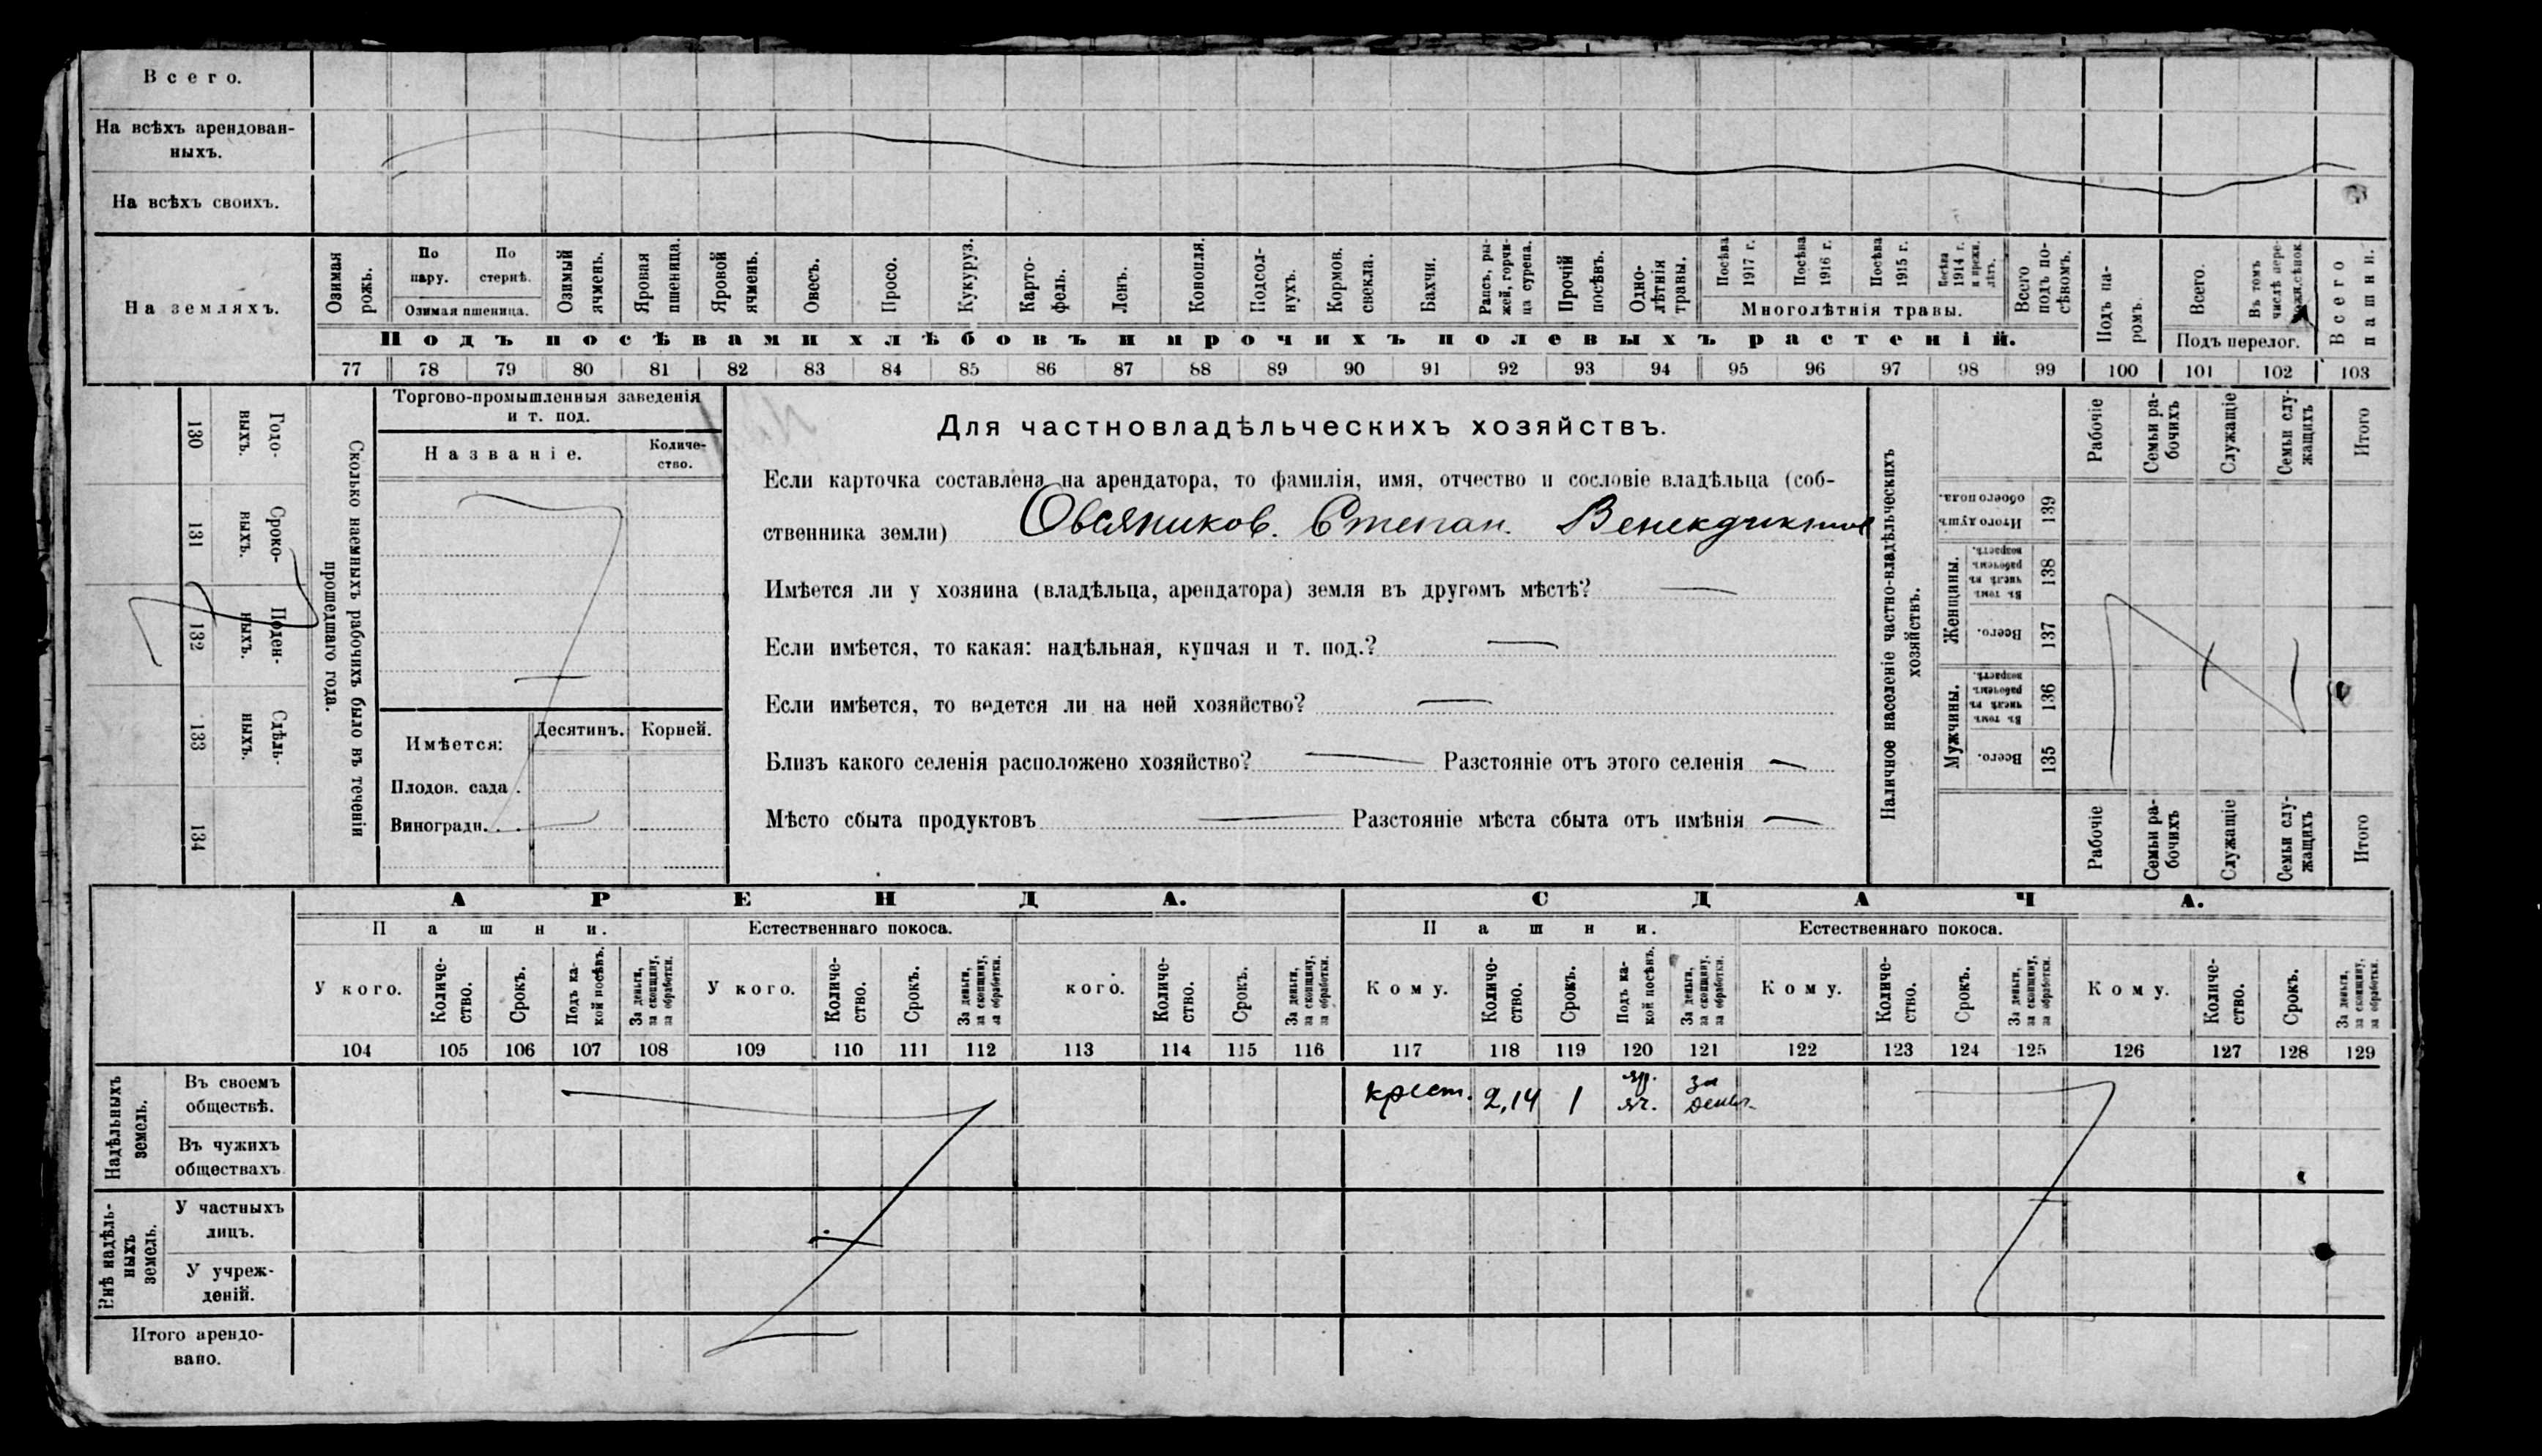 Всего.
На всѣхъ арендован-
ныхъ.
На всѣхъ своихъ.
На земляхъ.
Озимая рожь.
По пару.
По стернѣ.
Озимая пшеница.
Озимый ячмень.
Яровая пшеница.
Яровой ячмень.
Овесъ.
Просо.
Кукуруз.
Карто-
фель.
Ленъ.
Конопля.
Подсол-
нухъ.
Кормов. свекла.
Бахчи.
Рапсъ, ры-
жей, горчи-
ца сурепа.
Прочій посѣвъ.
Одно-
лѣтнія травы.
Посѣва 1917 г.
Посѣва 1916 г.
Посѣва 1915 г.
Посѣва 1914 г. и прежн. лѣтъ.
Многолѣтнія травы.
Всего подъ по-
сѣвомъ.
Подъ па-
ромъ.
Всего.
Въ томъ числѣ пере-
Подъ перелог.
Всего пашни.
Подъ посѣвами хлѣбовъ и прочихъ полевыхъ растеній.
77 78 79 80 81 82 83 84 85 86 87 88 89 90 91 92 93 94 95 96 97 98 99 100 101 102 103
Годо-
ныхъ.
130
Сроко-
ныхъ.
131
Поден-
ныхъ.
132
Сдѣль-
ныхъ.
133
134
Сколько наемныхъ рабочихъ было въ теченіи
прошедшаго года.
Торгово-промышленныя заведенія
и т. под.
Названіе.
Количе-
ство.
Имѣется:
Десятинъ.
Корней.
Плодов. сада .
Виноградн. . .
Для частновладѣльческихъ хозяйствъ.
Если карточка составлена на арендатора, то фамилія, имя, отчество и сословіе владѣльца (соб-
ственника земли) Овсяников. Степан. Венедиктов
Имѣется ли у хозяина (владѣльца, арендатора) земля въ другомъ мѣстѣ? —
Если имѣется, то какая: надѣльная, купчая и т. под.? —
Если имѣется, то ведется ли на ней хозяйство? —
Близъ какого селенія расположено хозяйство? — Разстояніе отъ этого селенія —
Мѣсто сбыта продуктовъ — Разстояніе мѣста сбыта отъ имѣнія —
Наличное населеніе частно-владѣльческихъ
хозяйствъ.
Итого душъ обоего пола.
139
Женщины.
Въ томъ числѣ въ рабочемъ возрастѣ.
138
Всего.
137
Мужчины.
Въ томъ числѣ въ рабочемъ возрастѣ.
136
Всего.
135
Рабочіе
Семьи ра-
бочихъ
Служащіе
Семьи слу-
жащихъ
Итого
Рабочіе
Семьи ра-
бочихъ
Служащіе
Семьи слу-
жащихъ
Итого
АРЕНДА.
СДАЧА.
Пашни.
Естественнаго покоса.
Пашни.
Естественнаго покоса.
У кого.
Количе-
ство.
Срокъ.
Подъ ка-
кой посѣвъ.
За деньги, за скопщину, за обработки.
У кого.
Количе-
ство.
Срокъ.
За деньги, за скопщину, за обработки.
кого.
Количе-
ство.
Срокъ.
За деньги, за скопщину, за обработки.
Кому.
Количе-
ство.
Срокъ.
Подъ ка-
кой посѣвъ.
За деньги, за скопщину, за обработки.
Кому.
Количе-
ство.
Срокъ.
За деньги, за скопщину, за обработки.
Кому.
Количе-
ство.
Срокъ.
За деньги, за скопщину, за обработки.
104 105 106 107 108 109 110 111 112 113 114 115 116 117 118 119 120 121 122 123 124 125 126 127 128 129
Надѣльныхъ
земель.
Въ своемъ
обществѣ.
крест. 2,14 1 яр. яч. за деньг.
Въ чужихъ
обществахъ
Внѣ надѣль-
ныхъ
земель.
У частныхъ
лицъ.
У учреж-
деній.
Итого арендо-
вано.